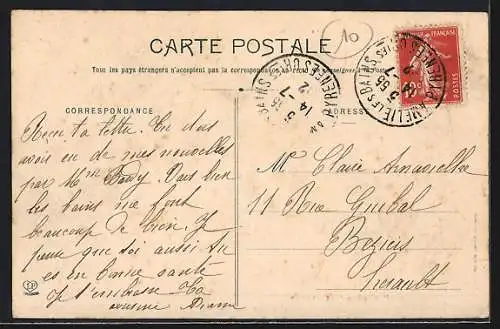 CARTE POSTALE
10
Tous les pays étrangers n'acceptent pas la correspondance au recto
CORRESPONDANCE
ADRESSE
POSTES
AMELIE-LES-BAINS
PYRENEES-ORIES
Reçu ta lettre. Tu dois
avoir eu de mes nouvelles
par Mme Vais bien
les bains me font
beaucoup de bien. J'
pense que toi aussi tu
es en bonne santé
Je t'embrasse Ta
cousine
M Claire
11 Rue Guibal
Beziers
Herault